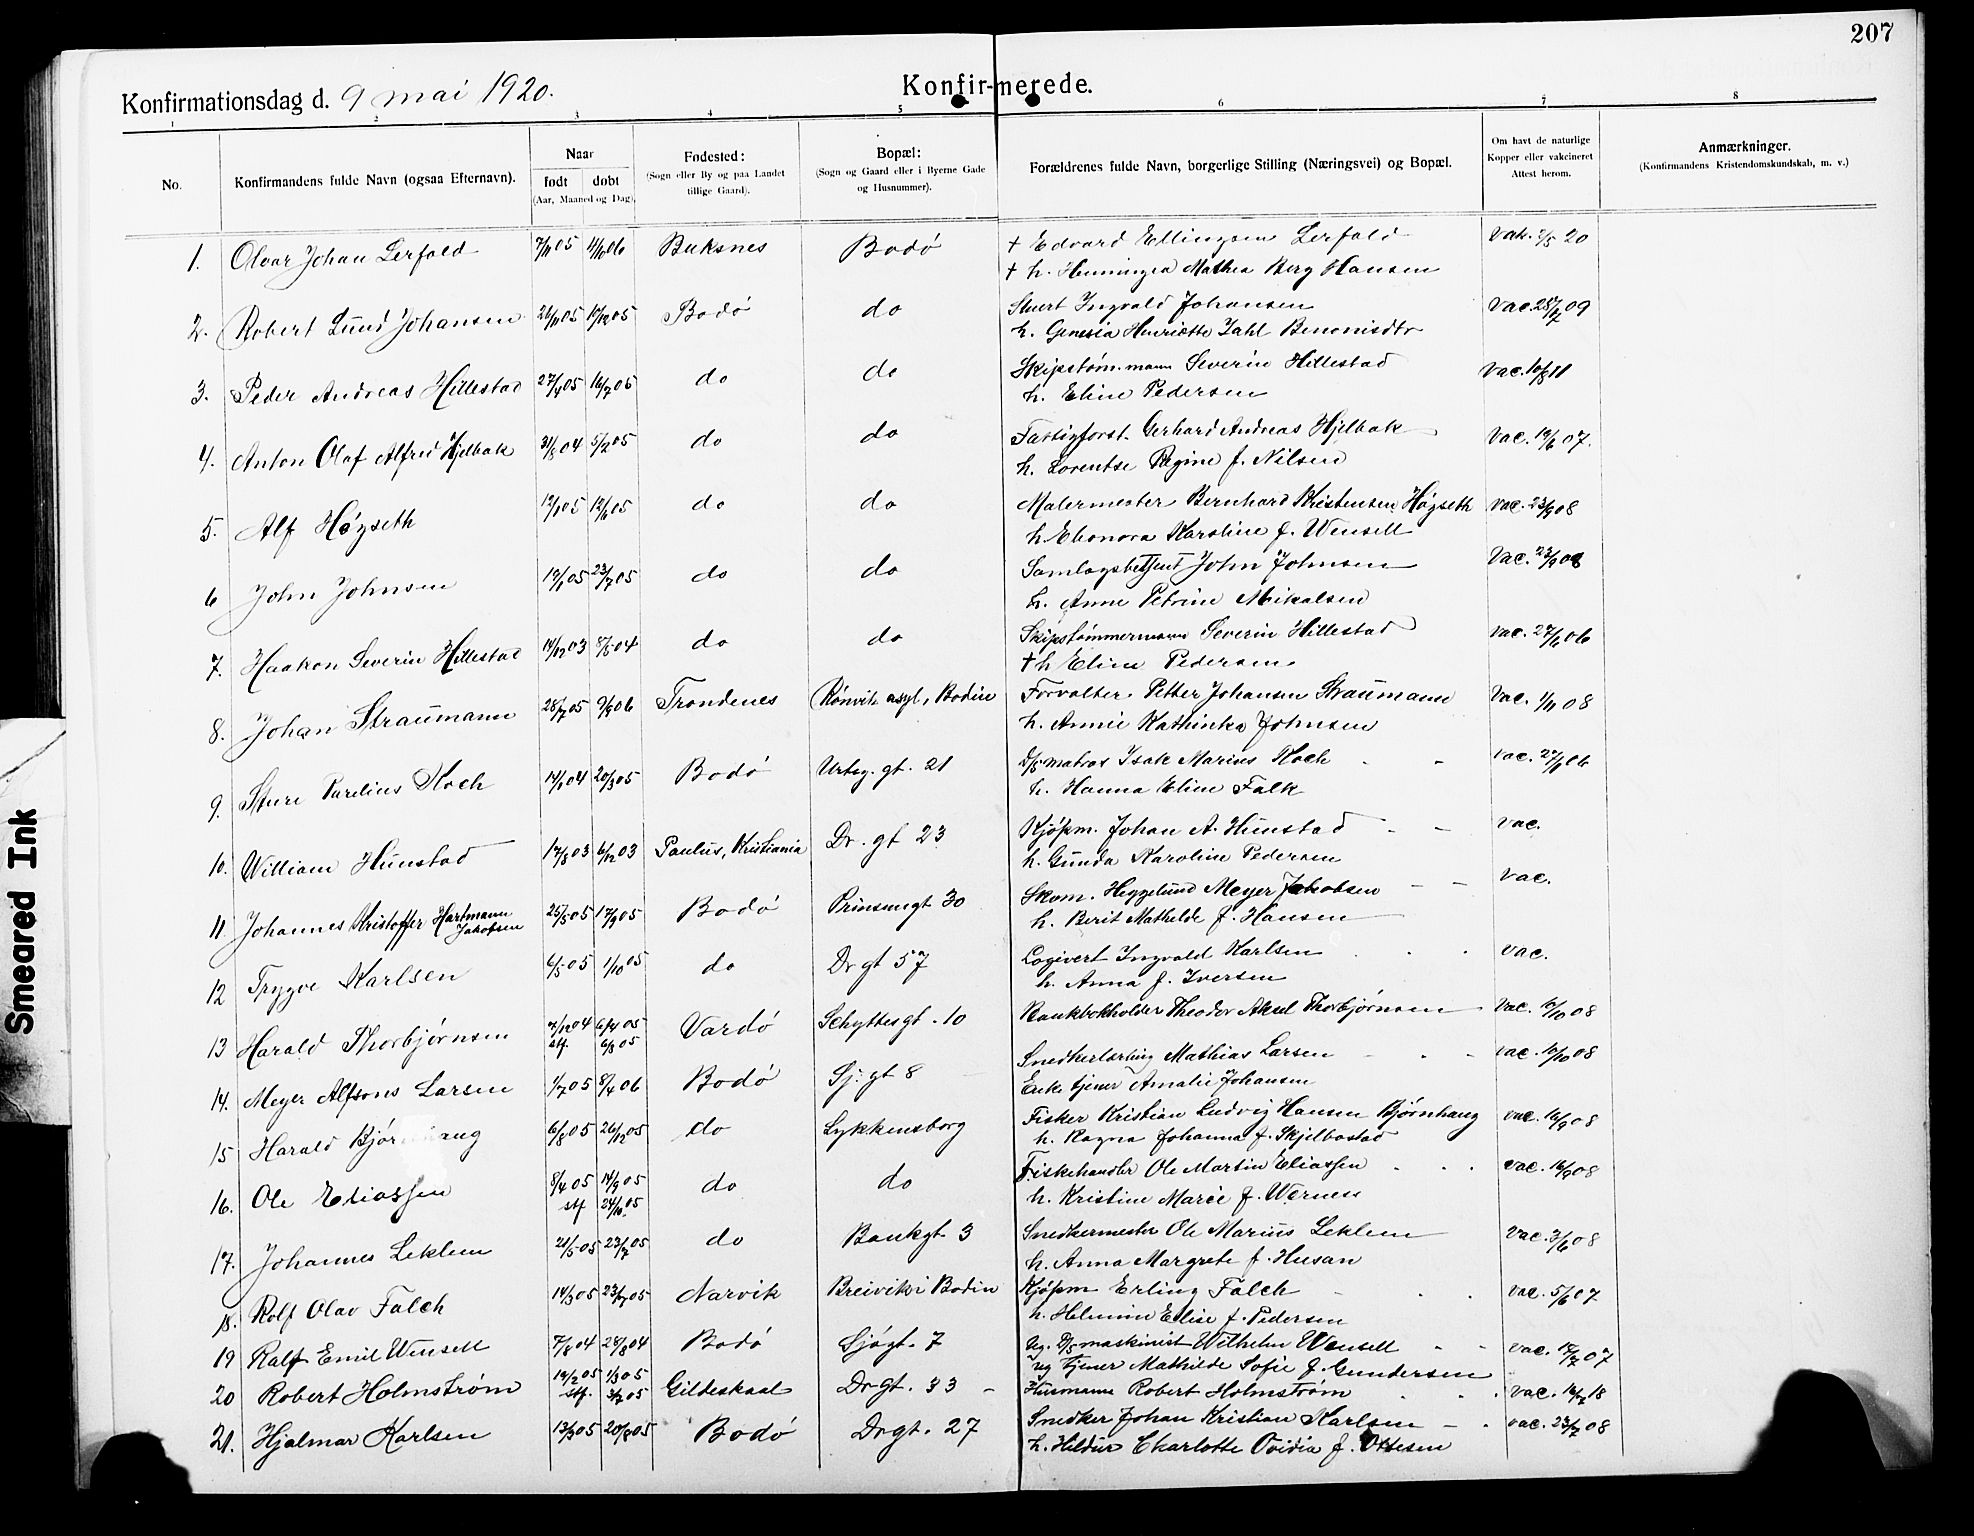 207
Konfirmationsdag d. 9 mai 1920.
Konfir-merede.
1 2 3 4 5 6 7 8
No.
Konfirmandens fulde Navn (ogsaa Efternavn).
Naar
født døbt
(Aar, Maaned og Dag).
Fødested:
(Sogn eller By og paa Landet
tillige Gaard).
Bopæl:
(Sogn og Gaard eller i Byerne Gade
og Husnummer).
Forældrenes fulde Navn, borgerlige Stilling (Næringsvei) og Bopæl.
Om havt de naturlige
Kopper eller vakcineret
Attest herom.
Anmærkninger.
(Konfirmandens Kristendomskundskab, m. v.)
1. Olvar Johan Lerfald 7/11 05 Buksnes Bodø † Edvard Ellingsen Lerfald vak. 20
† h. Henningea Mathea Berg Hansen
2. Robert Lund Johansen 26/11 05 10/12 05 Bodø do Stuert Ingvald Johansen vac. 28/7 09
h. Genesia Henriette Zahl Benonisdtr
3. Peder Andreas Hillestad 27/4 05 16/7 05 do do Skipstøm.mann Severin Hillestad vac. 10/8 11
h. Eline Pedersen
4. Anton Olaf Alfred Hjelbak 31/8 04 5/2 05 do do Fattigforst. Gerhard Andreas Hjelbak vac. 19/6 07.
h. Lorentse Regine f. Nilsen
5. Alf Høgseth 05 05 do do Malermester Bernhard Kristensen Høgseth vac. 23/9 08
h. Elenora Karoline f. Wensell
6 John Johnsen 05 23/7 05 do do Samlagsbetjent John Johnsen Vac. 23/9 08
h. Anne Petrine Mikalsen
7. Haakon Severin Hillestad 14/12 03 8/5 04 do do Skipstømmermann Severin Hillestad vac. 27/6 06
† h Eline Pedersen
8. Johan Straumann 28/7 05 9/9 06 Trondenes Rønvik asyl, Bodin Forvalter. Petter Johansen Straumann Vac. 1/11 08
h. Annie Kathinka Johnsen
9. Sture Parelius Koch 04 20/3 05 Bodø Urteg. gt. 21 D/S matros Isak Marius Koch vac. 27/6 06
h. Hanna Eline Falk
10. William Hunstad 17/8 03 6/12 03 Paulus, Kristiania Dr. gt 23 Kjøpm. Johan A. Hunstad vac.
h. Gunda Karoline Pedersen
11 Johannes Kristoffer Hartmann Jakobsen 25/5 05 17/9 05 Bodø Prinsensgt 30 Skom. Heggelund Meyer Jakobsen vac.
h. Berit Mathilde f. Hansen
12 Trygve Karlsen 6/5 05 1/10 05 do Dr gt 57 Logivert Ingvald Karlsen vac.
h. Anna f. Iversen
13 Harald Thorbjørnsen 7/12 04 stf. 05 6/8 05 Vardø Schyttesgt. 10 Bankbokholder Theodor Aksel Thorbjørnsen vac. 10/10 08
14. Meyer Alfsons Larsen 1/7 05 8/4 06 Bodø Sj. gt 8 Snedkerlærling Mathias Larsen vac. 10/10 08
Enke tjener Amalie Johansen
15 Harald Bjørnhaug 6/8 05 26/12 05 do Lykkensborg Fisker Kristian Ludvig Hansen Bjørnhaug vac. 16/9 08
h. Ragna Johanna f. Skjelbostad
16. Ole Eliassen 8/4 05 stf 14/9 05 24/10 05 do do Fiskehandler Ole Martin Eliassen vac. 16/9 08
h. Kristine Marie f. Wernes
17. Johannes Leklem 21/5 05 23/7 05 do Bankgt. 3 Snedkermester Ole Marius Leklem vac. 3/6 08
h. Anna Margrete f. Husan
18. Rolf Olav Falch 14/3 05 23/7 05 Narvik Breivik i Bodin Kjøpm Erling Falch vac. 5/6 07
h. Helmine Elise f. Pedersen
19 Ralf Emil Wensell 7/8 04 28/8 04 Bodø Sjøgt. 7 Ug. D/S maskinist Wilhelm Wensell vac. 07
ug tjener Mathilde Sofie f. Gundersen
20 Robert Holmstrøm 05 stf. 1/3 05 05 Gildeskaal Dr gt. 33 Husmann Robert Holmstrøm vac. 18
21. Hjalmar Karlsen 13/3 05 20/8 05 Bodø Dr gt. 27 Snedker Johan Kristian Karlsen vac. 23/7 08
h. Hildur Charlotte Ovidia f. Ottesen
Smeared Ink